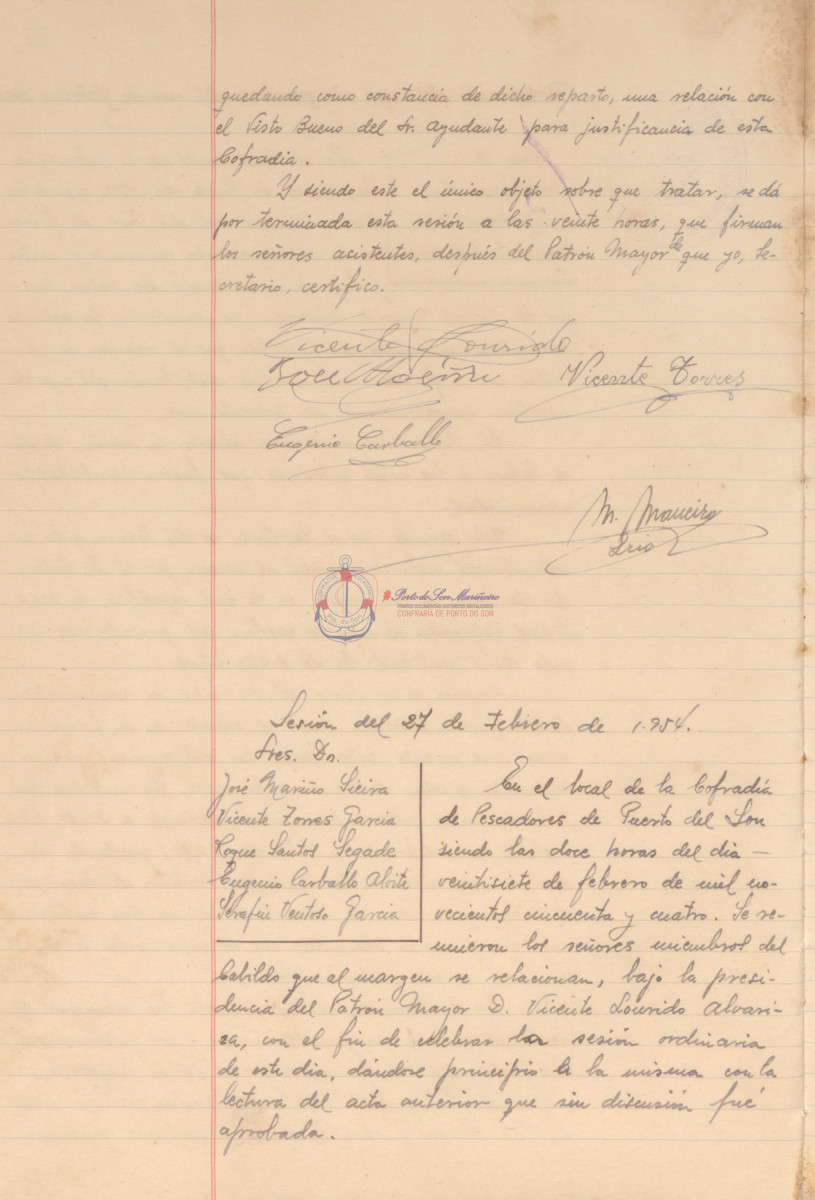 quedando como constancia de dicho reparto, una relación con
el Visto Bueno del Sr. Ayudante para justificancia de esta
Cofradia.
Y siendo este el único objeto sobre que tratar, se dá
por terminada esta sesión a las veinte horas, que firman
los señores acistentes, después del Patrón Mayor de que yo, Se-
cretario, certifico.
Vicente Lourido
Jose Mariño Vicente Torres
Eugenio Carballo
M. Maneiro
Srio
Porto do Son Mariñeiro
FONDOS DOCUMENTAIS HISTÓRICOS DIXITALIZADOS
CONFRARÍA DE PORTO DO SON
Sesión del 27 de Febrero de 1.954.
Sres. Dn.
José Mariño Sieira
Vicente Torres Garcia
Roque Santos Segade
Eugenio Carballo Aloite
Serafin Ventoso Garcia
En el local de la Cofradía
de Pescadores de Puerto del Son
siendo las doce horas del dia —
veintisiete de febrero de mil no-
vecientos cincuenta y cuatro. Se re-
unieron los señores miembros del
Cabildo que al margen se relacionan, bajo la presi-
dencia del Patrón Mayor D. Vicente Lourido Alvari-
za, con el fin de celebrar la sesión ordinaria
de este dia, dándose principio a la misma con la
lectura del acta anterior que sin discusión fué
aprobada.